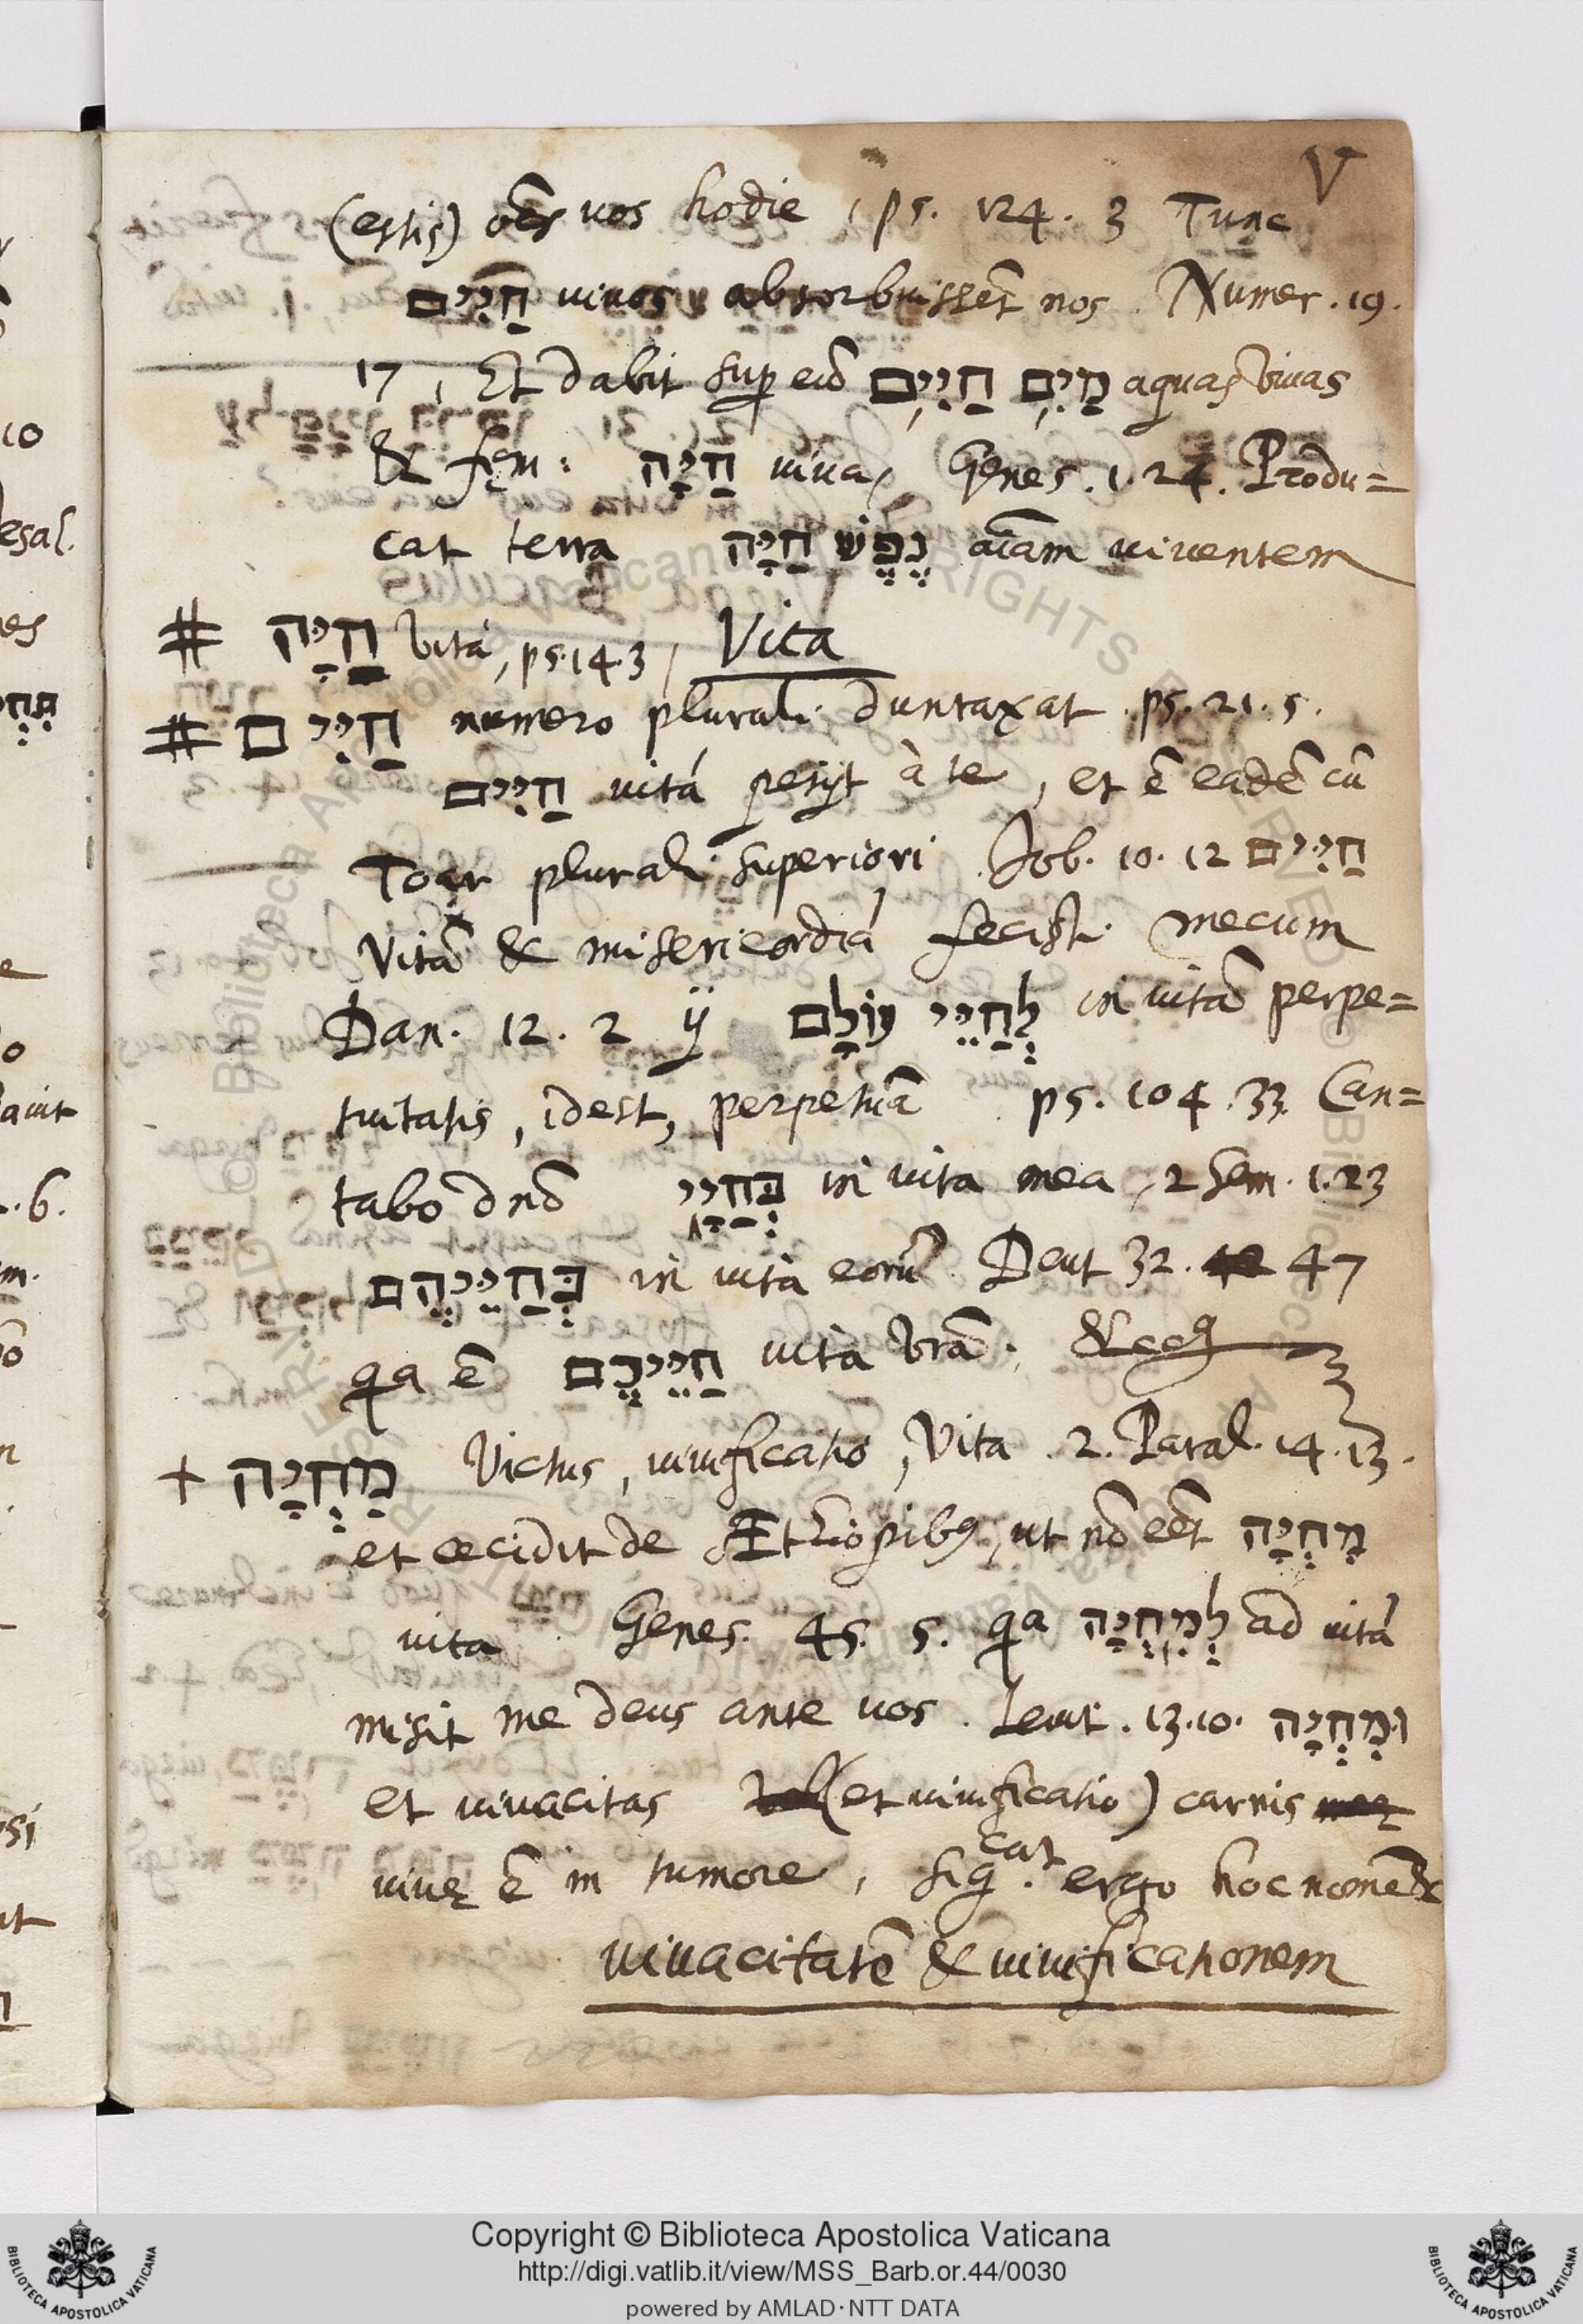 V
(estis) oēs uos hodie, ps. 124. 3 Tunc
חַיִּים uiuos absorbuissēt nos. Numer. 19.
17, Et dabit sup eūd מַיִם חַיִּים aquas viuas
& fęm: חַיָּה uiua, Genes. 1. 24. Produ=
cat terra נֶפֶשׁ חַיָּה aīam uiuentem
# חַיָּה vitá, ps. 143, Vita
# חַיִּים numero plurali duntaxat ps. 21. 5.
חַיִּים uitá petijt à te, et ē eadē cū
Toar plurali superiori. Job. 10. 12 חַיִּים
Vitā & misericordiá fecisti mecum
Dan. 12. 2 ij לְחַיֵּי עוֹלָם in uitā perpe=
tuitatis, idest, perpetuā ps. 104. 33. Can=
tabo dnō בְּחַיָּי in uita mea, 2 Sem. 1. 23
בְּחַיֵּיהֶם in uita eorū. Deut 32. 47
qa ē חַיֵּיכֶם uita vrā.
+ מִחְיָה Victus, uiuificatio, Vita. 2. Paral. 14. 13.
et cecidit de Æthiopibq, ut nō eēt מִחְיָה
uita Genes. 45. 5. qa לְמִחְיָה ad uitá
misit me deus ante uos. Leuit. 13. 10. וּמִחְיָה
et uiuacitas (et uiuificatio) carnis
uiuę ē in tumore, sig.cat ergo hoc nomē &
uiuacitatē & uiuificationem
Copyright © Biblioteca Apostolica Vaticana
http://digi.vatlib.it/view/MSS_Barb.or.44/0030
powered by AMLAD·NTT DATA
BIBLIOTECA APOSTOLICA VATICANA
BIBLIOTECA APOSTOLICA VATICANA